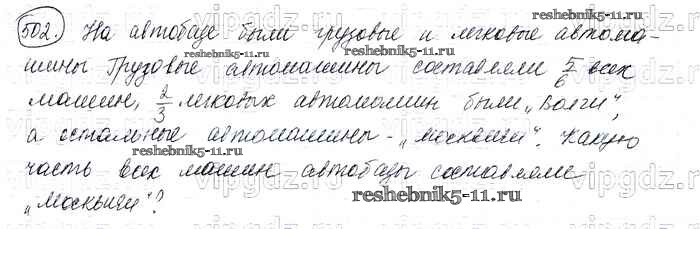 502. На автобазе были грузовые и легковые автома-
шины Грузовые автомашины составляли 5/6 всех
машин, 2/3 легковых автомашин были „Волги",
а остальные автомашины - „москвичи". Какую
часть всех машин автобазы составляли
„москвичи"?
reshebnik5-11.ru
reshebnik5-11.ru
reshebnik5-11.ru
vipgdz.ru
vipgdz.ru
vipgdz.ru